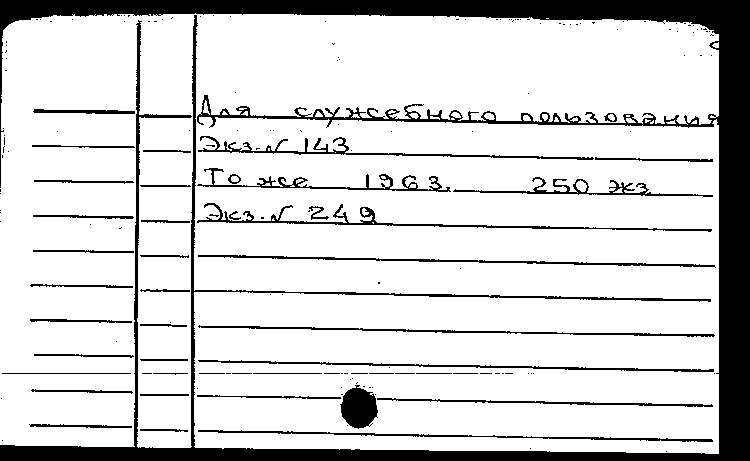 Для служебного пользования
Экз. № 143
То же 1963. 250 экз
Экз. № 249